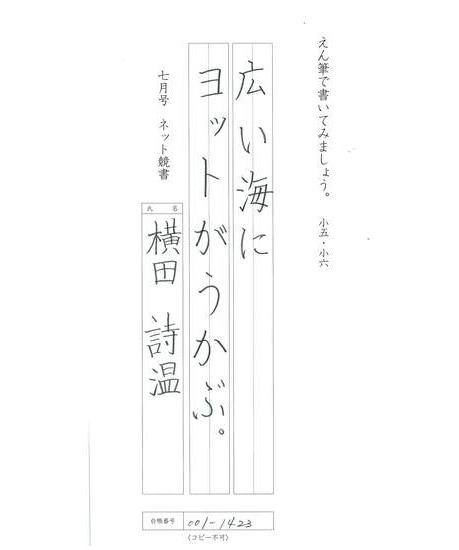 えん筆で書いてみましょう。 小五・小六
広い海に
ヨットがうかぶ。
七月号 ネット競書
氏名
横田 詩温
会員番号 001-1423
(コピー不可)